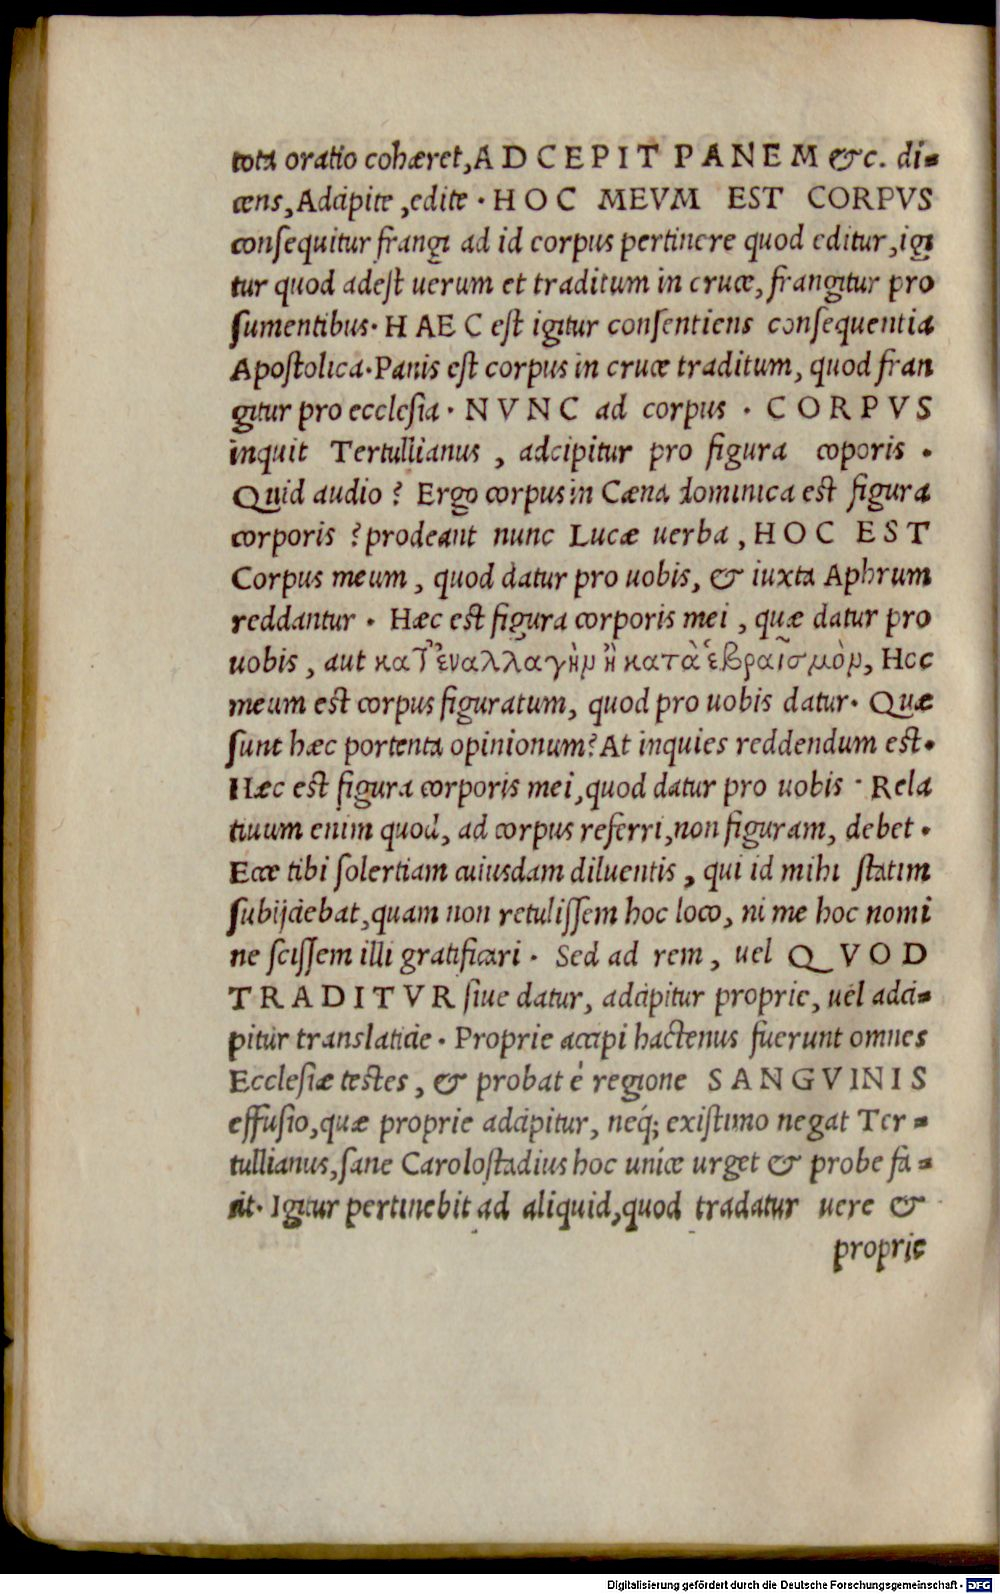 tota oratio cohæret,ADCEPIT PANEM &c. di-
cens,Adcipite ,edite . HOC MEVM EST CORPVS
consequitur frangi ad id corpus pertinere quod editur,igi
tur quod adest uerum et traditum in cruce, frangitur pro
sumentibus. HAEC est igitur consentiens consequentia
Apostolica.Panis est corpus in cruce traditum, quod fran
gitur pro ecclesia . NVNC ad corpus . CORPVS
inquit Tertullianus , adcipitur pro figura coporis .
Quid audio ? Ergo corpus in Cæna dominica est figura
corporis ? prodeant nunc Lucæ uerba , HOC EST
Corpus meum , quod datur pro uobis, & iuxta Aphrum
reddantur . Hæc est figura corporis mei , quæ datur pro
uobis , aut κατ᾽ ἐναλλαγὴν ἢ κατὰ ἑβραϊσμὸν, Hoc
meum est corpus figuratum, quod pro uobis datur. Quæ
sunt hæc portenta opinionum? At inquies reddendum est.
Hæc est figura corporis mei,quod datur pro uobis . Rela
tiuum enim quod, ad corpus referri,non figuram, debet .
Ecce tibi solertiam cuiusdam diluentis , qui id mihi statim
subijciebat,quam non retulissem hoc loco, ni me hoc nomi
ne scissem illi gratificari . Sed ad rem, uel QVOD
TRADITVR siue datur, adcipitur proprie, uel adci-
pitur translaticie . Proprie accipi hactenus fuerunt omnes
Ecclesiæ testes , & probat è regione SANGVINIS
effusio,quæ proprie adcipitur, neq; existimo negat Ter-
tullianus,sane Carolostadius hoc unice urget & probe fa-
cit. Igitur pertinebit ad aliquid,quod tradatur uere &
proprie
Digitalisierung gefördert durch die Deutsche Forschungsgemeinschaft - DFG